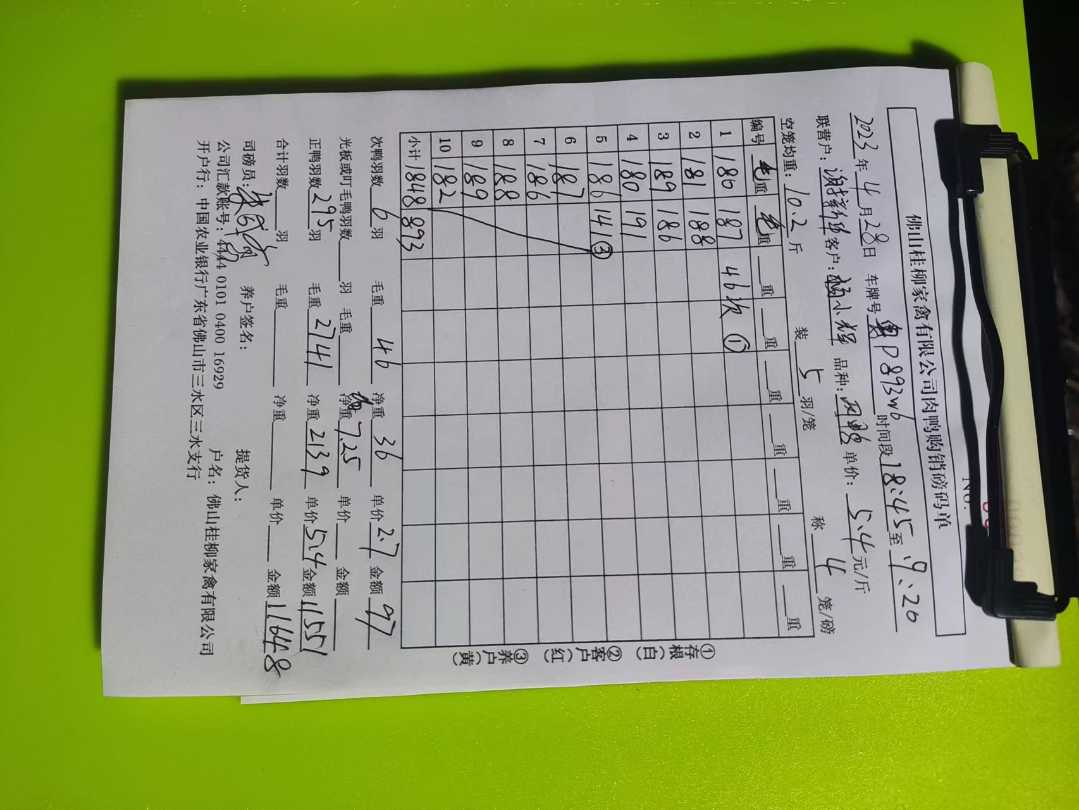 佛山桂柳家禽有限公司肉鸭购销磅码单
No.
2023年4月28日 车牌号 粤P893W6 时间段 18:45至19:20
联营户: 客户: 小辉 品种: 单价: 5.4元/斤
空笼均重: 10.2斤 装 5 羽/笼 称 4 笼/磅
编号 毛重 毛重 重 重 重 重 重 重 重
1 180 187 46次①
2 181 188
3 189 186
4 180 191
5 186 141③
6 187
7 186
8 188
9 189
10 182
小计 1848 893
次鸭羽数 6 羽 毛重 46 净重 36 单价 2.7 金额 97
光板或叮毛鸭羽数 羽 毛重 净重 7.25 单价 金额
正鸭羽数 295 羽 毛重 2741 净重 2139 单价 5.4 金额 11551
合计羽数 羽 毛重 净重 单价 金额 11648
司磅员: 养户签名: 提货人:
公司汇款账号: 0101 0400 16929 户名: 佛山桂柳家禽有限公司
开户行: 中国农业银行广东省佛山市三水区三水支行
①存根(白) ②客户(红) ③养户(黄)